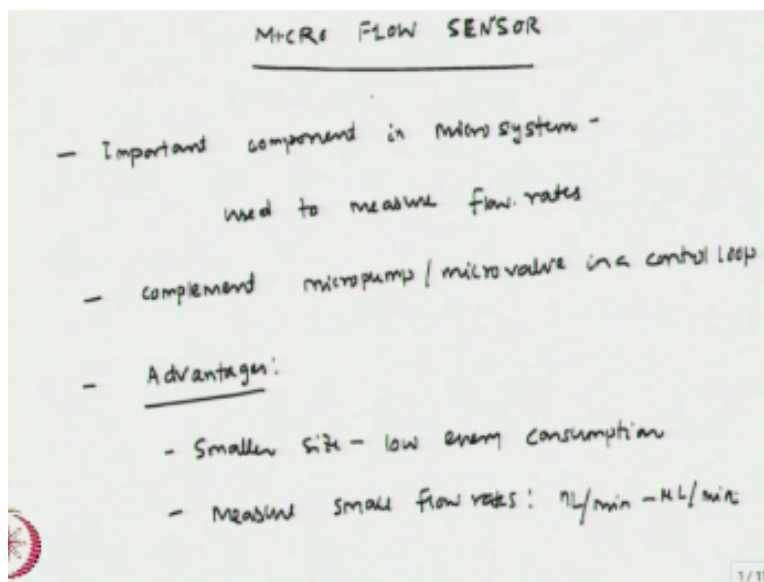 MICRO FLOW SENSOR
- Important component in microsystem -
used to measure flow rates
- complement micropump / microvalve in a control loop
- Advantages:
- Smaller size - low energy consumption
- Measure small flow rates: nL/min - μL/min
1/11